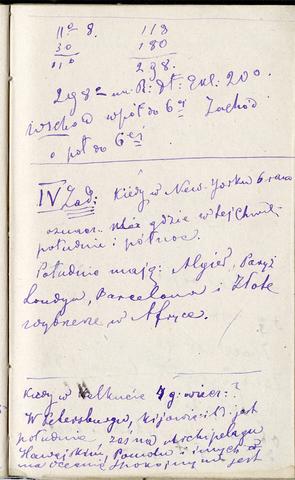 11º 8.   118
30   180
11º   298.
298º na R: dł: Ekl. 20º.
wschód wpół do 6ej Zachód
o pół do 6ej
IV Zad: Kiedy w New-Yorku 6 rano
oznacz. gdzie w tej chwili
południe i północ.
Południe mają: Algier, Paryż
Londyn, Barcelona i Złote
wybrzeże w Afryce.
Kiedy w Kalkucie 4 g: wiecz:?
W Petersburgu, Kijowie i t: jest
południe, zaś na Archipelagu
Hawajskim, Pomotu i innych
na Oceanie Spokojnym jest